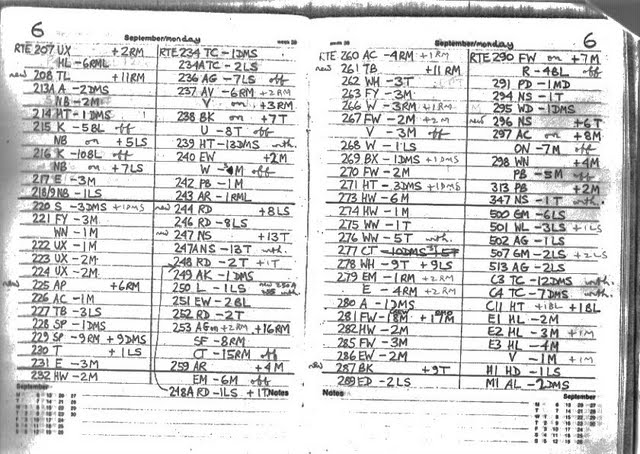 6
September/monday
week 36
RTE 207 UX +2RM
HL -6RML
new 208 TL +11RM
213A A -2DMS
NB -2M
214 HT -1DMS
215 K -5BL off
NB on +5LS
216 K -10BL off
NB on +7LS
217 E -3M
218/9 NB -1LS
220 S -3DMS +1DMS
221 FY -3M
WN -1M
222 UX -1M
223 UX -2M
224 UX -2M
new 225 AP +6RM
226 AC -1M
227 TB -3LS
228 SP -1DMS
229 SP -9RM +9DMS
230 T +1LS
231 E -3M
232 HW -2M
September
RTE 234 TC -1DMS
234A TC -2LS
236 AG -7LS off
237 AV -6RM +2RM
V on +3RM
238 BK on +7T
U -8T off
239 HT -13DMS wth.
240 EW +2M
W -3M off
242 PB -1M
243 AR -1RML
new 244 RD +8LS
246 RD -8LS
new 247 NS +13T
247A NS -13T wth.
248 RD -2T +1T
249 AK -1DMS
250 L -1LS new 250A
251 EW -2BL
252 RD -2T
253 AG on +2RM +16RM
SF -8RM
CT -15RM off
259 AR +4M
EM -6M off
248A RD -1LS +1T
Notes
September/monday
6
RTE 260 AC -4RM +1RM
new 261 TB +11RM
262 WH -3T
263 FY -3M
266 W -3RM +1RM
267 FW -2M +2M
V -3M off
268 W -1LS
269 BX -1DMS +1DMS
270 FW -2M
271 HT -3DMS +1DMS
273 HW -6M
274 HW -1M
275 WW -1T
276 WW -5T wth.
277 CT
278 WH -9T +9LS
279 EM -1RM +2RM
E -4RM +2RM
280 A -1DMS
281 FW -18M +17M
282 HW -2M
285 FW -3M
286 EW -2M
new 287 BK +9T
289 ED -2LS
Notes
RTE 290 FW on +7M
R -4BL off
291 PD -1MD
294 NS -1T
295 WD -1DMS
new 296 NS +6T
297 AC on +8M
ON -7M off
298 WN +4M
PB -5M off
313 PB +2M
347 NS -1T wth.
500 GM -6LS
501 WL -3LS +1LS
502 AG -1LS
507 GM -2LS +2LS
513 AG -2LS
C3 TC -12DMS wth.
C4 TC -7DMS wth.
C11 HT +1BL +1BL
E1 HL -2M
E2 HL -3M +1M
E3 HL -4M
V -1M +1M
H1 HD -1LS
M1 AL -2DMS
September